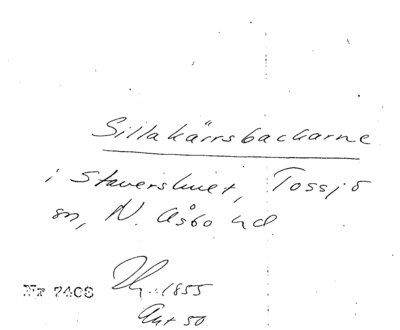 Sillakärrsbackarne
i Stavershult, Tossjö
sn, N. Åsbo hd
Nr 7408
1855
50